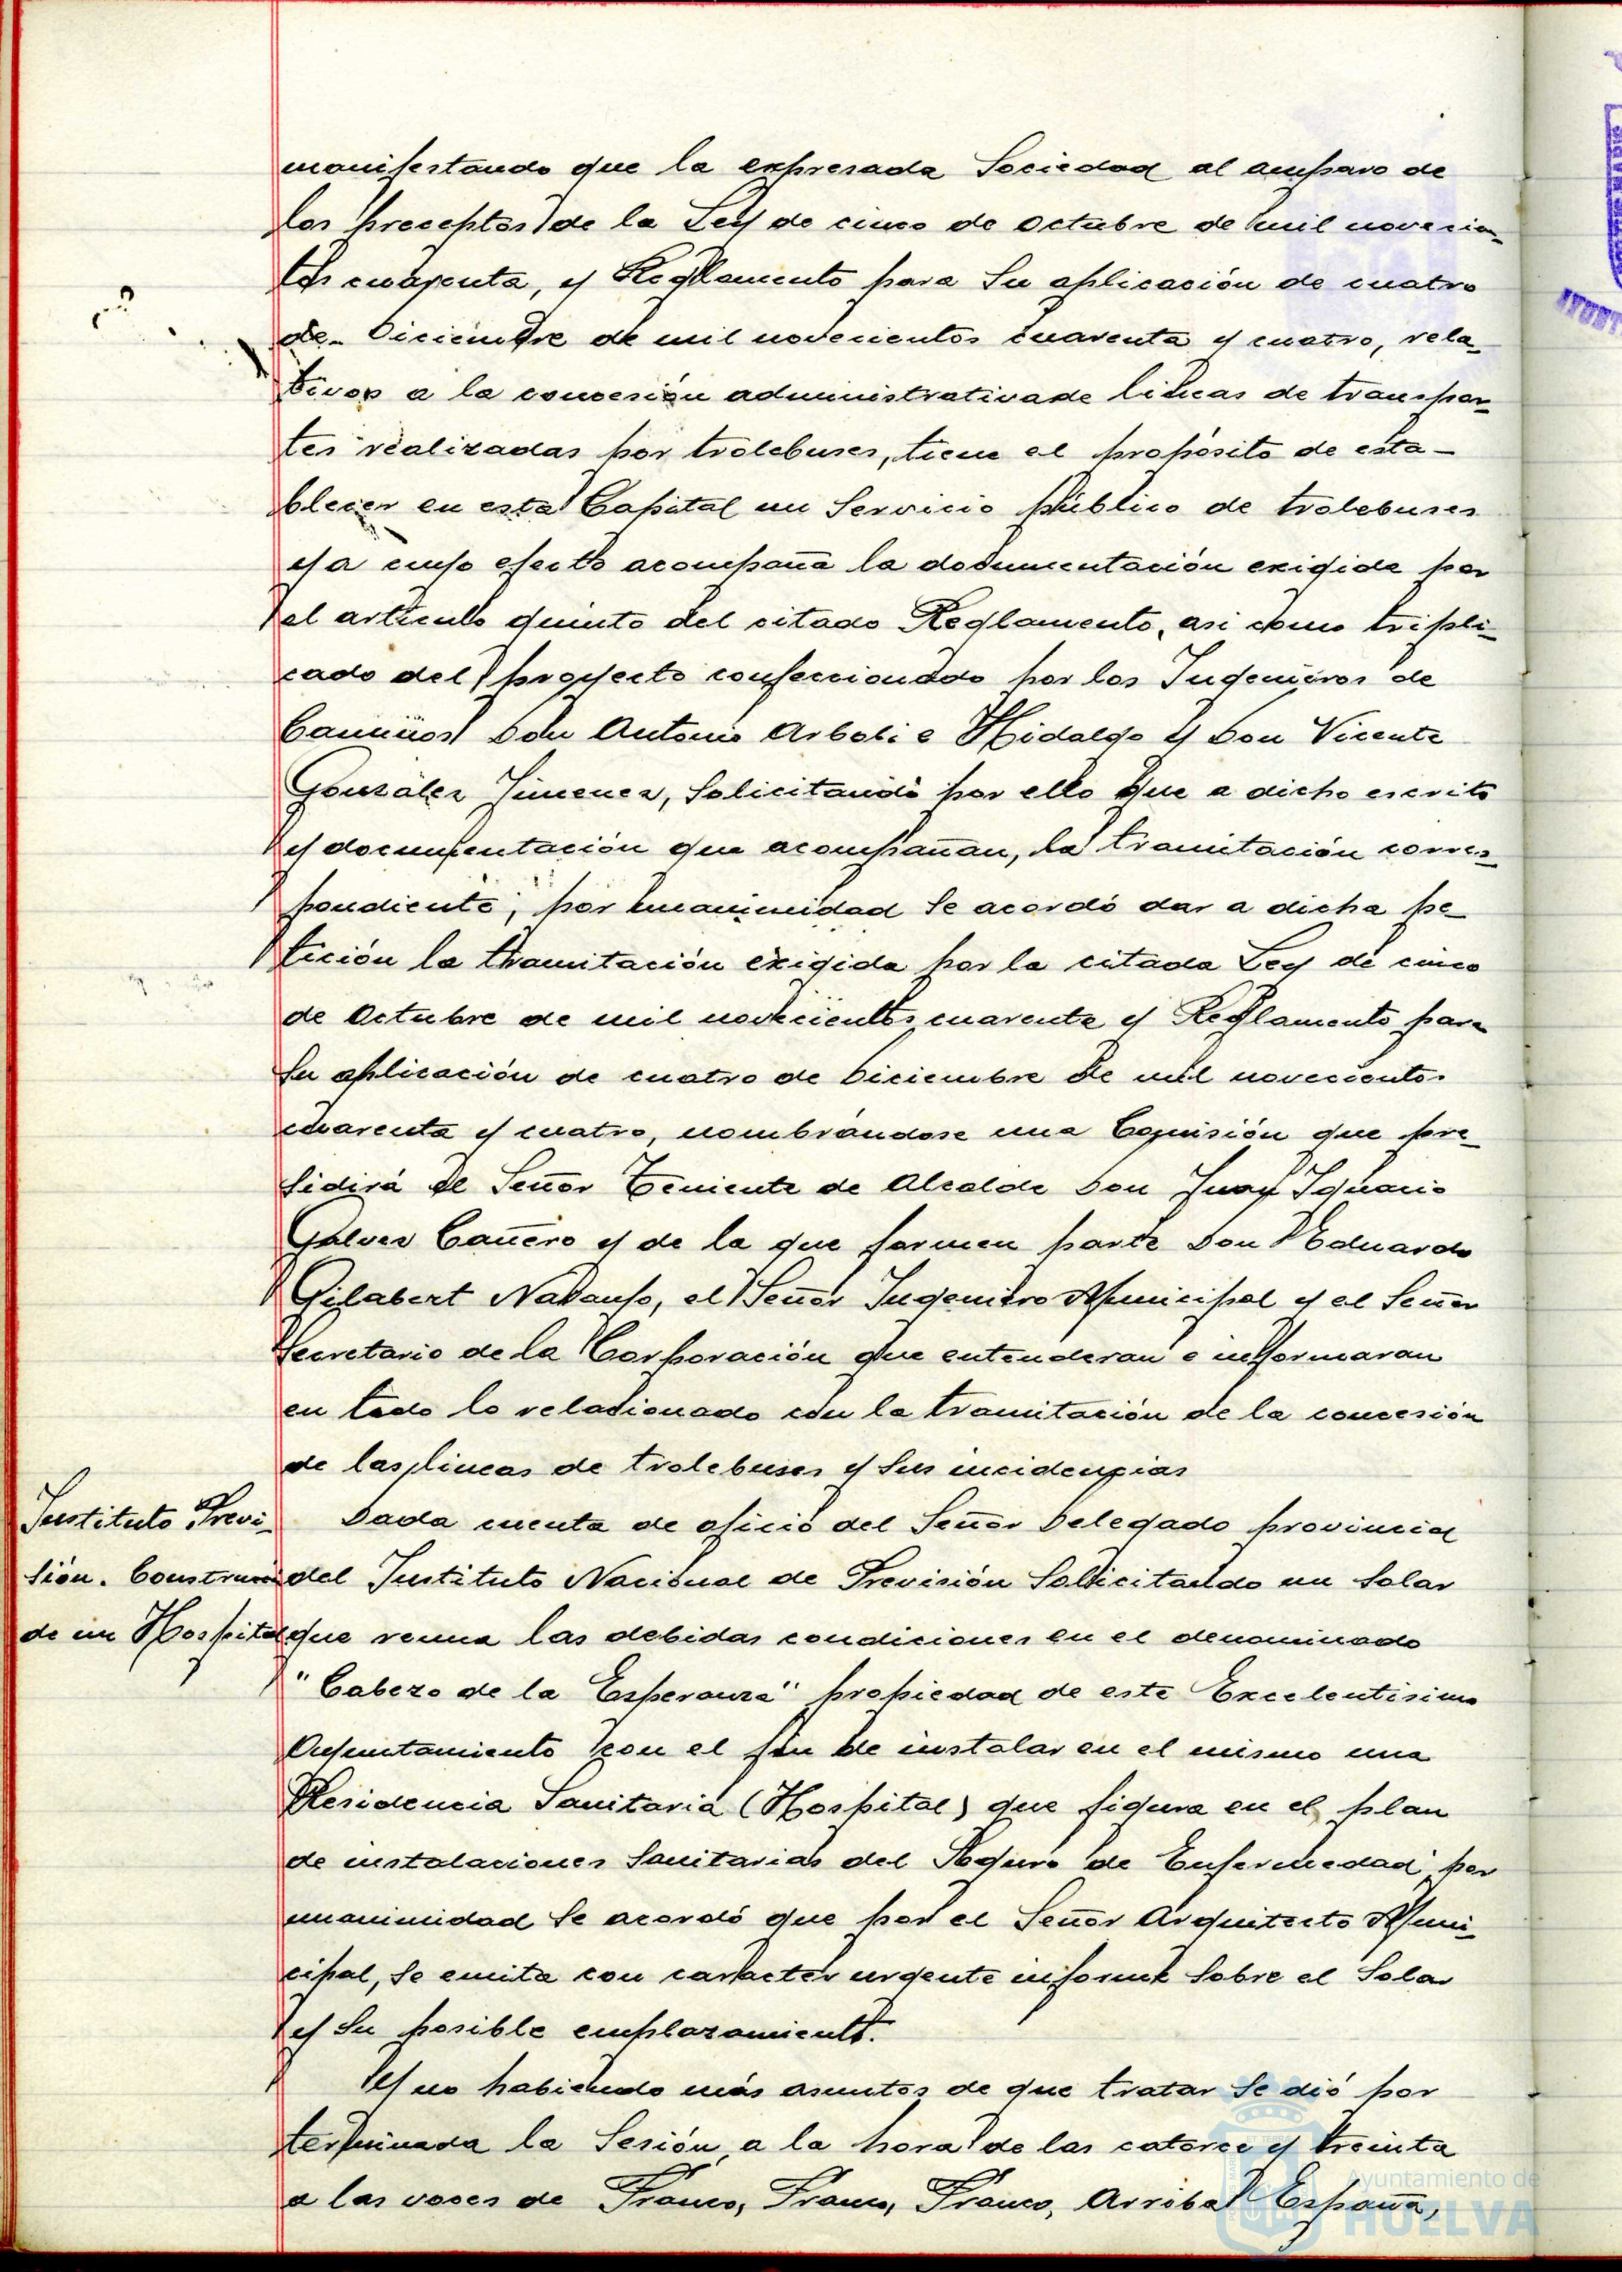 manifestando que la expresada Sociedad al amparo de
los preceptos de la Ley de cinco de Octubre de mil novecien-
tos cuarenta, y Reglamento para su aplicación de cuatro
de Diciembre de mil novecientos cuarenta y cuatro, rela-
tivos a la concesión administrativa de lineas de transpor-
tes realizadas por trolebuses, tiene el propósito de esta-
blecer en esta Capital un Servicio público de trolebuses
y a cuyo efecto acompaña la documentación exigida por
el artículo quinto del citado Reglamento, asi como tripli-
cado del proyecto confeccionado por los Ingenieros de
Caminos Don Antonio Arboli e Hidalgo y Don Vicente
González Jimenez, Solicitando por ello que a dicho escrito
y documentación que acompañan, la tramitación corres-
pondiente; por unanimidad se acordó dar a dicha pe-
tición la tramitación exigida por la citada Ley de cinco
de Octubre de mil novecientos cuarenta y Reglamento para
su aplicación de cuatro de Diciembre de mil novecientos
cuarenta y cuatro, nombrándose una Comisión que pre-
sidirá el Señor Teniente de Alcalde Don Juan Ignacio
Galvez Cañero y de la que formen parte Don Eduardo
Gilabert, el Señor Ingeniero Municipal y el Señor
Secretario de la Corporación que entenderan e informaran
en todo lo relacionado con la tramitación de la concesión
de las lineas de trolebuses y sus incidencias
Instituto Previ- Dada cuenta de oficio del Señor Delegado provincial
sión. Construcción del Instituto Nacional de Previsión Solicitando un Solar
de un Hospital que reuna las debidas condiciones en el denominado
"Cabezo de la Esperanza" propiedad de este Excelentisimo
Ayuntamiento con el fin de instalar en el mismo una
Residencia Sanitaria (Hospital) que figura en el plan
de instalaciones Sanitarias del Seguro de Enfermedad por
unanimidad se acordó que por el Señor Arquitecto Muni-
cipal, se emita con caracter urgente informe sobre el Solar
y su posible emplazamiento.
Y no habiendo más asuntos de que tratar se dió por
terminada la Sesión a la hora de las catorce y treinta
a las voces de Franco, Franco, Franco, Arriba España,
Ayuntamiento de
HUELVA